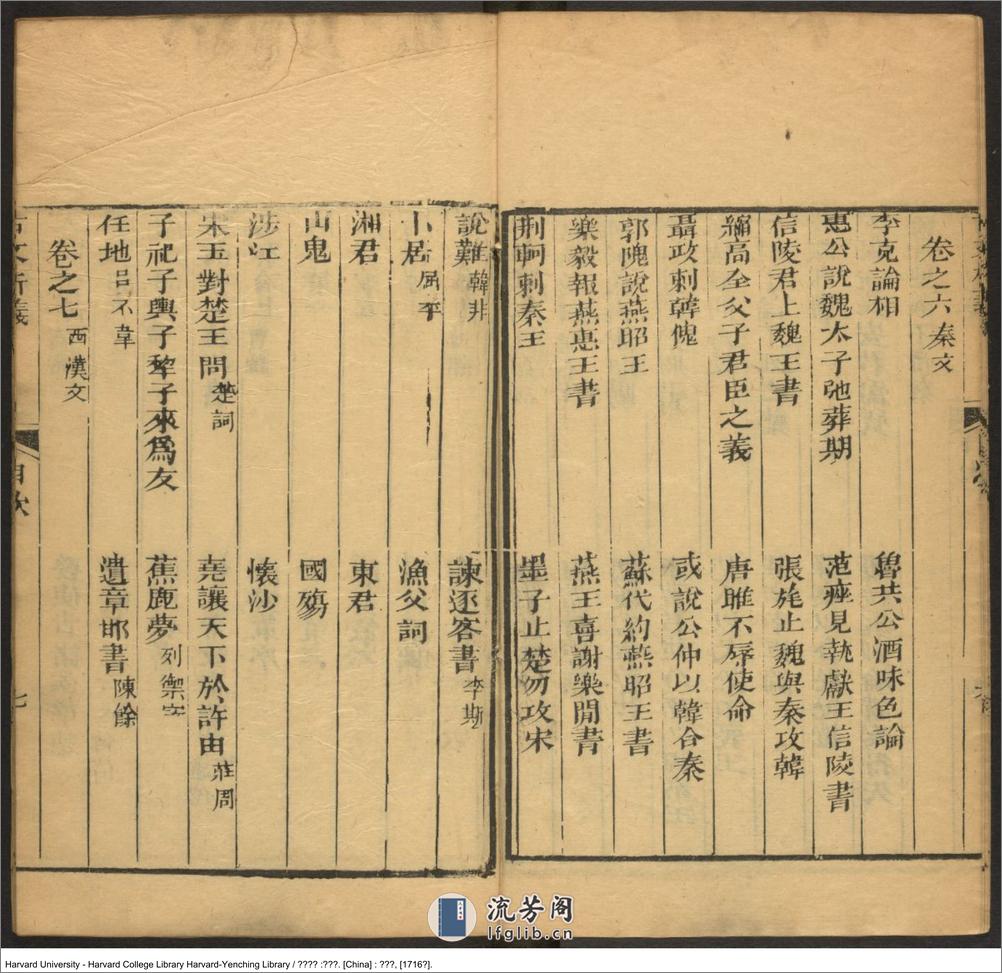 卷之六 秦文
李克論相
魯共公酒味色論
惠公說魏太子弛葬期
范痤見執獻王信陵書
信陵君上魏王書
張旄止魏與秦攻韓
縮高全父子君臣之義
唐雎不辱使命
聶政刺韓傀
或說公仲以韓合秦
郭隗說燕昭王
蘇代約燕昭王書
樂毅報燕惠王書
燕王喜謝樂閒書
荆軻刺秦王
墨子止楚勿攻宋
說難 韓非
諫逐客書 李斯
卜居 屈平
漁父詞
湘君
東君
山鬼
國殤
涉江
懷沙
宋玉對楚王問 楚詞
堯讓天下於許由 莊周
子祀子輿子犂子來爲友
蕉鹿夢 列禦寇
任地 呂不韋
遺章邯書 陳餘
卷之七 西漢文
古文析義
目次
七
流芳阁
lfglib.cn
Harvard University - Harvard College Library Harvard-Yenching Library / ???? :???. [China] : ???, [1716?].